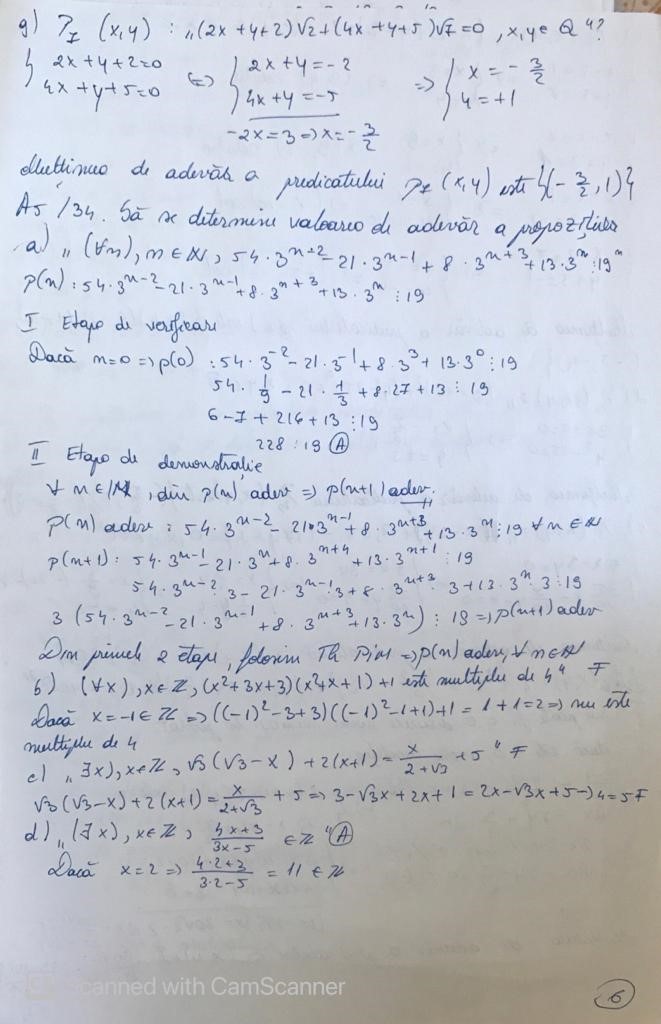 g) P₇ (x,y) : „(2x+y+2)√2+(4x+y+5)√7=0 ,x,y∈ Q"?
{ 2x+y+2=0 ⇔ { 2x+y=-2 => { x=-3/2
4x+y+5=0 4x+y=-5 y=+1
-2x=3=>x=-3/2
Mulțimea de adevăr a predicatului P₇ (x,y) este {(-3/2, 1)}
A5/34. Să se determine valoarea de adevăr a propozițiilor
a) „ (∀n), n∈ℕ, 54·3ⁿ⁻²-21·3ⁿ⁻¹+8·3ⁿ⁺³+13·3ⁿ⋮19"
p(n) : 54·3ⁿ⁻²-21·3ⁿ⁻¹+8·3ⁿ⁺³+13·3ⁿ⋮19
I Etapa de verificare
Dacă n=0 => p(0) : 54·3⁻²-21·3⁻¹+8·3³+13·3⁰⋮19
54·1/9-21·1/3+8·27+13⋮19
6-7+216+13⋮19
228⋮19 (A)
II Etapa de demonstrație
∀ n∈ℕ, din p(n) adev => p(n+1) adev.
p(n) adev : 54·3ⁿ⁻²-21·3ⁿ⁻¹+8·3ⁿ⁺³+13·3ⁿ⋮19 ∀ n∈ℕ
p(n+1) : 54·3ⁿ⁻¹-21·3ⁿ+8·3ⁿ⁺⁴+13·3ⁿ⁺¹⋮19
54·3ⁿ⁻²·3-21·3ⁿ⁻¹·3+8·3ⁿ⁺³·3+13·3ⁿ·3⋮19
3(54·3ⁿ⁻²-21·3ⁿ⁻¹+8·3ⁿ⁺³+13·3ⁿ)⋮19=>p(n+1) adev
Din primele 2 etape, folosim Th PiM =>p(n) adev, ∀ n∈ℕ
b) (∀x), x∈ℤ, (x²+3x+3)(x²+x+1)+1 este multiplu de 4" F
Dacă x=-1∈ℤ =>((-1)²-3+3)((-1)²-1+1)+1=1+1=2=> nu este
multiplu de 4
c) „∃x), x∈ℤ, √3(√3-x)+2(x+1)=x/(2+√3)+5" F
√3(√3-x)+2(x+1)=x/(2+√3)+5=>3-√3x+2x+1=2x-√3x+5->4=5F
d) „(∃x), x∈ℤ, (4x+3)/(3x-5) ∈ℤ" (A)
Dacă x=2 => (4·2+3)/(3·2-5) = 11 ∈ℤ
CS Scanned with CamScanner
6